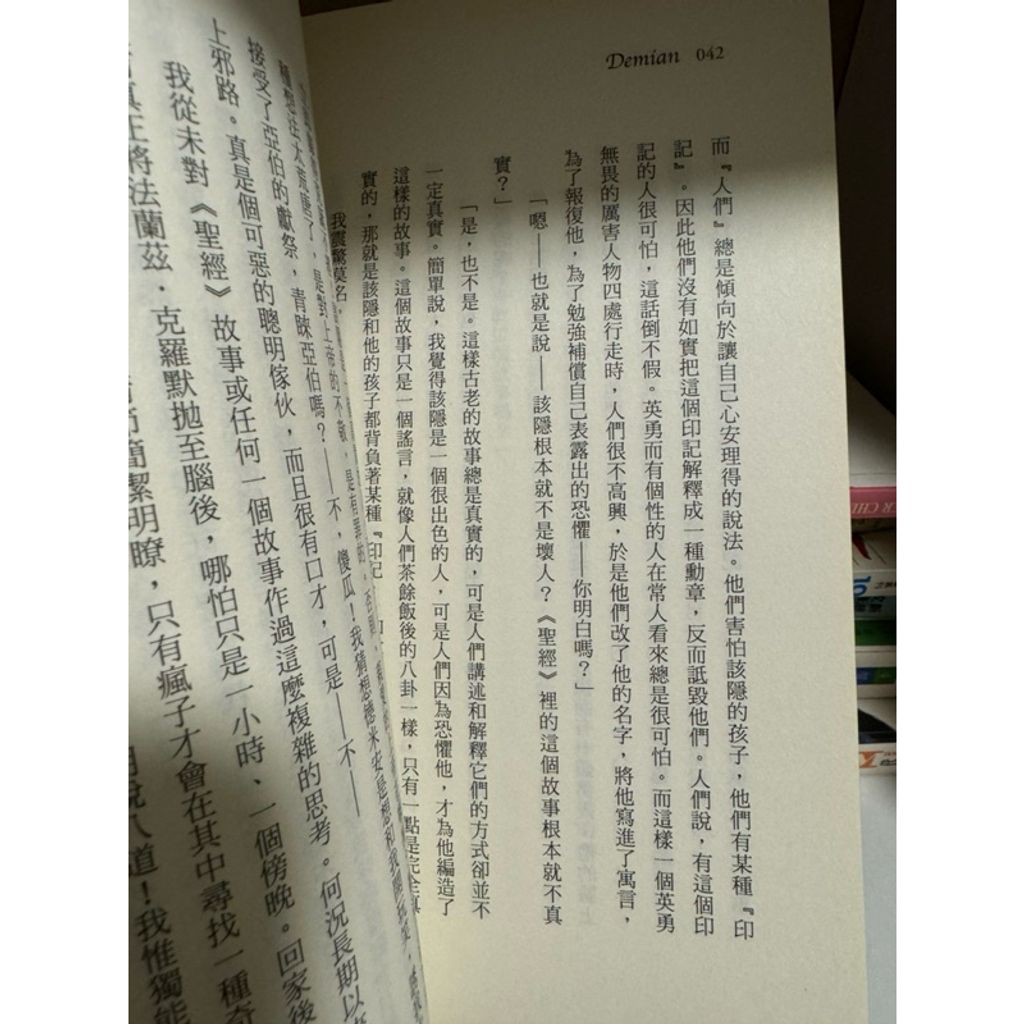 Demian 042
而『人們』總是傾向於讓自己心安理得的說法。他們害怕該隱的孩子，他們有某種『印
記』。因此他們沒有如實把這個印記解釋成一種勳章，反而詆毀他們。人們說，有這個印
記的人很可怕，這話倒不假。英勇而有個性的人在常人看來總是很可怕。而這樣一個英勇
無畏的厲害人物四處行走時，人們很不高興，於是他們改了他的名字，將他寫進了寓言，
為了報復他，為了勉強補償自己表露出的恐懼——你明白嗎？」
「嗯——也就是說——該隱根本就不是壞人？《聖經》裡的這個故事根本就不真
實？」
「是，也不是。這樣古老的故事總是真實的，可是人們講述和解釋它們的方式卻並不
一定真實。簡單說，我覺得該隱是一個很出色的人，可是人們因為恐懼他，才為他編造了
這樣的故事。這個故事只是一個謠言，就像人們茶餘飯後的八卦一樣，只有一點是完全真
實的，那就是該隱和他的孩子都背負著某種『印記
我震驚莫名
是對上帝的不敬
接受了亞伯的獻祭，青睞亞伯嗎？——不，傻瓜！我猜想德米安是想和我
上邪路。真是個可惡的聰明傢伙，而且很有口才，可是——不——
我從未對《聖經》故事或任何一個故事作過這麼複雜的思考。何況長期以
將法蘭茲．克羅默拋至腦後，哪怕只是一小時、一個傍晚。回家後
簡潔明瞭，只有瘋子才會在其中尋找一種奇
道！我惟獨能
ER CH
10